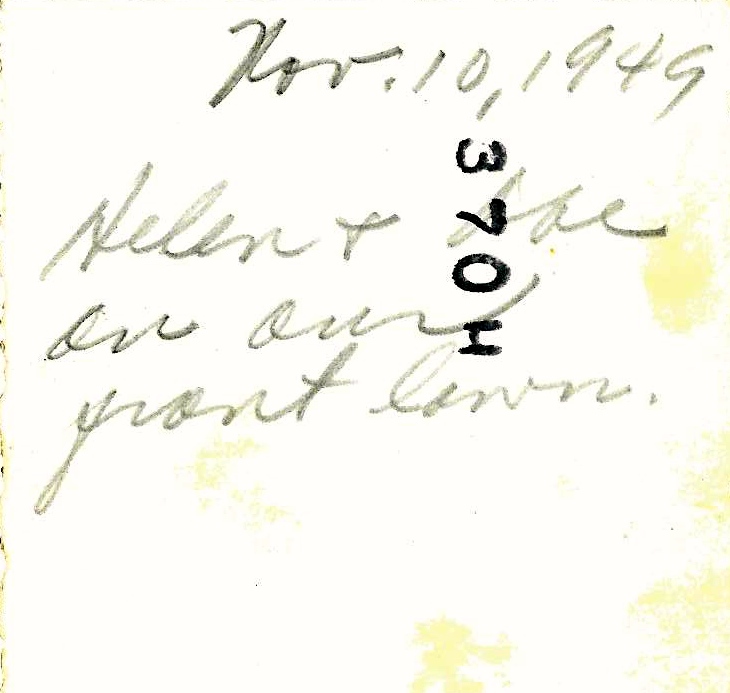 Nov. 10, 1949
370H
Helen +
on our
front lawn.